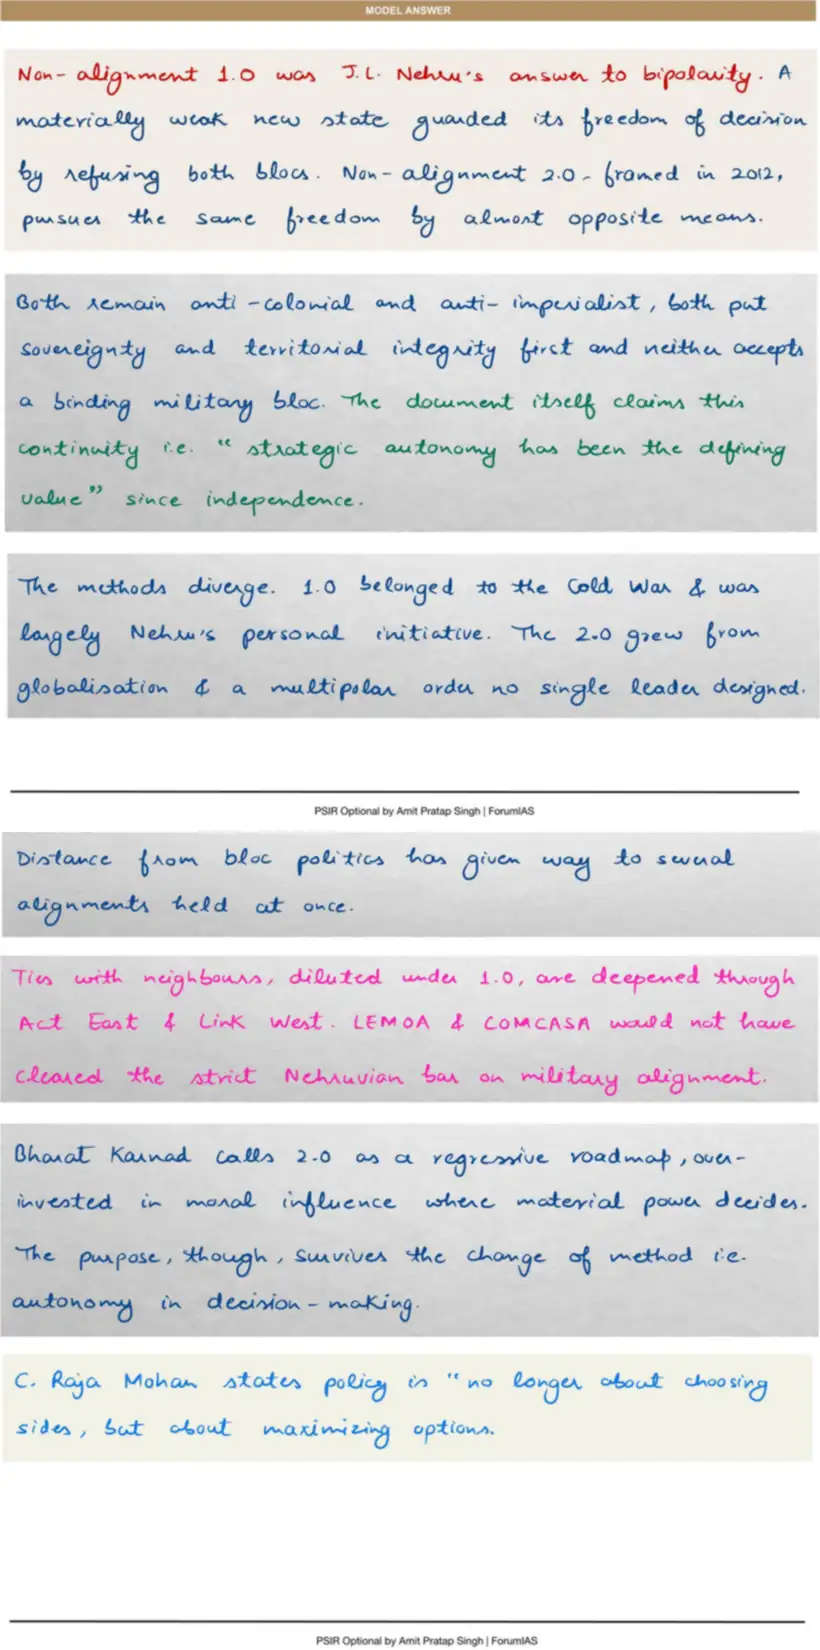 MODEL ANSWER
Non-alignment 1.0 was J.L. Nehru's answer to bipolarity. A
materially weak new state guarded its freedom of decision
by refusing both blocs. Non-alignment 2.0 - framed in 2012,
pursues the same freedom by almost opposite means.
Both remain anti-colonial and anti-imperialist, both put
sovereignty and territorial integrity first and neither accepts
a binding military bloc. The document itself claims this
continuity i.e. "strategic autonomy has been the defining
value" since independence.
The methods diverge. 1.0 belonged to the Cold War & was
largely Nehru's personal initiative. The 2.0 grew from
globalisation & a multipolar order no single leader designed.
PSIR Optional by Amit Pratap Singh | ForumIAS
Distance from bloc politics has given way to several
alignments held at once.
Ties with neighbours, diluted under 1.0, are deepened through
Act East & Link West. LEMOA & COMCASA would not have
cleared the strict Nehruvian bar on military alignment.
Bharat Karnad calls 2.0 as a regressive roadmap, over-
invested in moral influence where material power decides.
The purpose, though, survives the change of method i.e.
autonomy in decision-making.
C. Raja Mohan states policy is "no longer about choosing
sides, but about maximizing options.
PSIR Optional by Amit Pratap Singh | ForumIAS